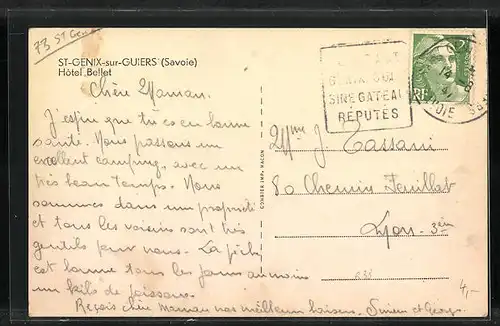 73 ST Genix
ST-GENIX-sur-GUIERS (Savoie)
Hôtel Bellet
Chère Maman.
J'espère que tu es en bonne
santé. Nous passons un
excellent camping, avec un
très beau temps. Nous
sommes dans une propriété
et tous les voisins sont très
gentils pour nous. La pêche
est bonne tous les jours au moins
un kilo de poissons.
Reçois chère maman nos meilleurs baisers. Simien et Georges
COMBIER IMP. MACON
SINE GATEAU
RÉPUTÉS
RF
Mme J. Tassani
80 Chemin Feuillat
Lyon-3è
4,-